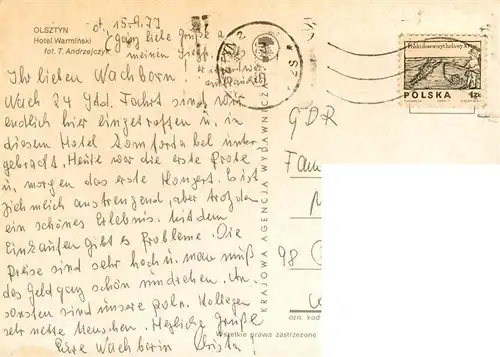 OLSZTYN
Hotel Warmiński
fot. T. Andrzejczyk
ot. 15.9.77
ganz liebe Grüße a
meinen
Ihr lieben Wachborn!
Nach 24 Std. Fahrt sind wir
endlich hier eingetroffen u. in
diesem Hotel komfortabel unter
gebracht. Heute war die erste Probe
u. morgen das erste Konzert. Es ist
ziemlich anstrengend, aber trotzdem
ein schönes Erlebnis. Mit dem
Einkaufen gibt es Probleme. Die
Preise sind sehr hoch u. man muß
das Geld ganz schön umdrehen. An
sonsten sind unsere poln. Kollegen
sehr nette Menschen. Herzliche Grüße
Eure Wachborin Christa
KRAJOWA AGENCJA WYDAWNICZA
POLSKA 1zł
GDR
Fam
98
ozn. kod
Wszelkie prawa zastrzeżone